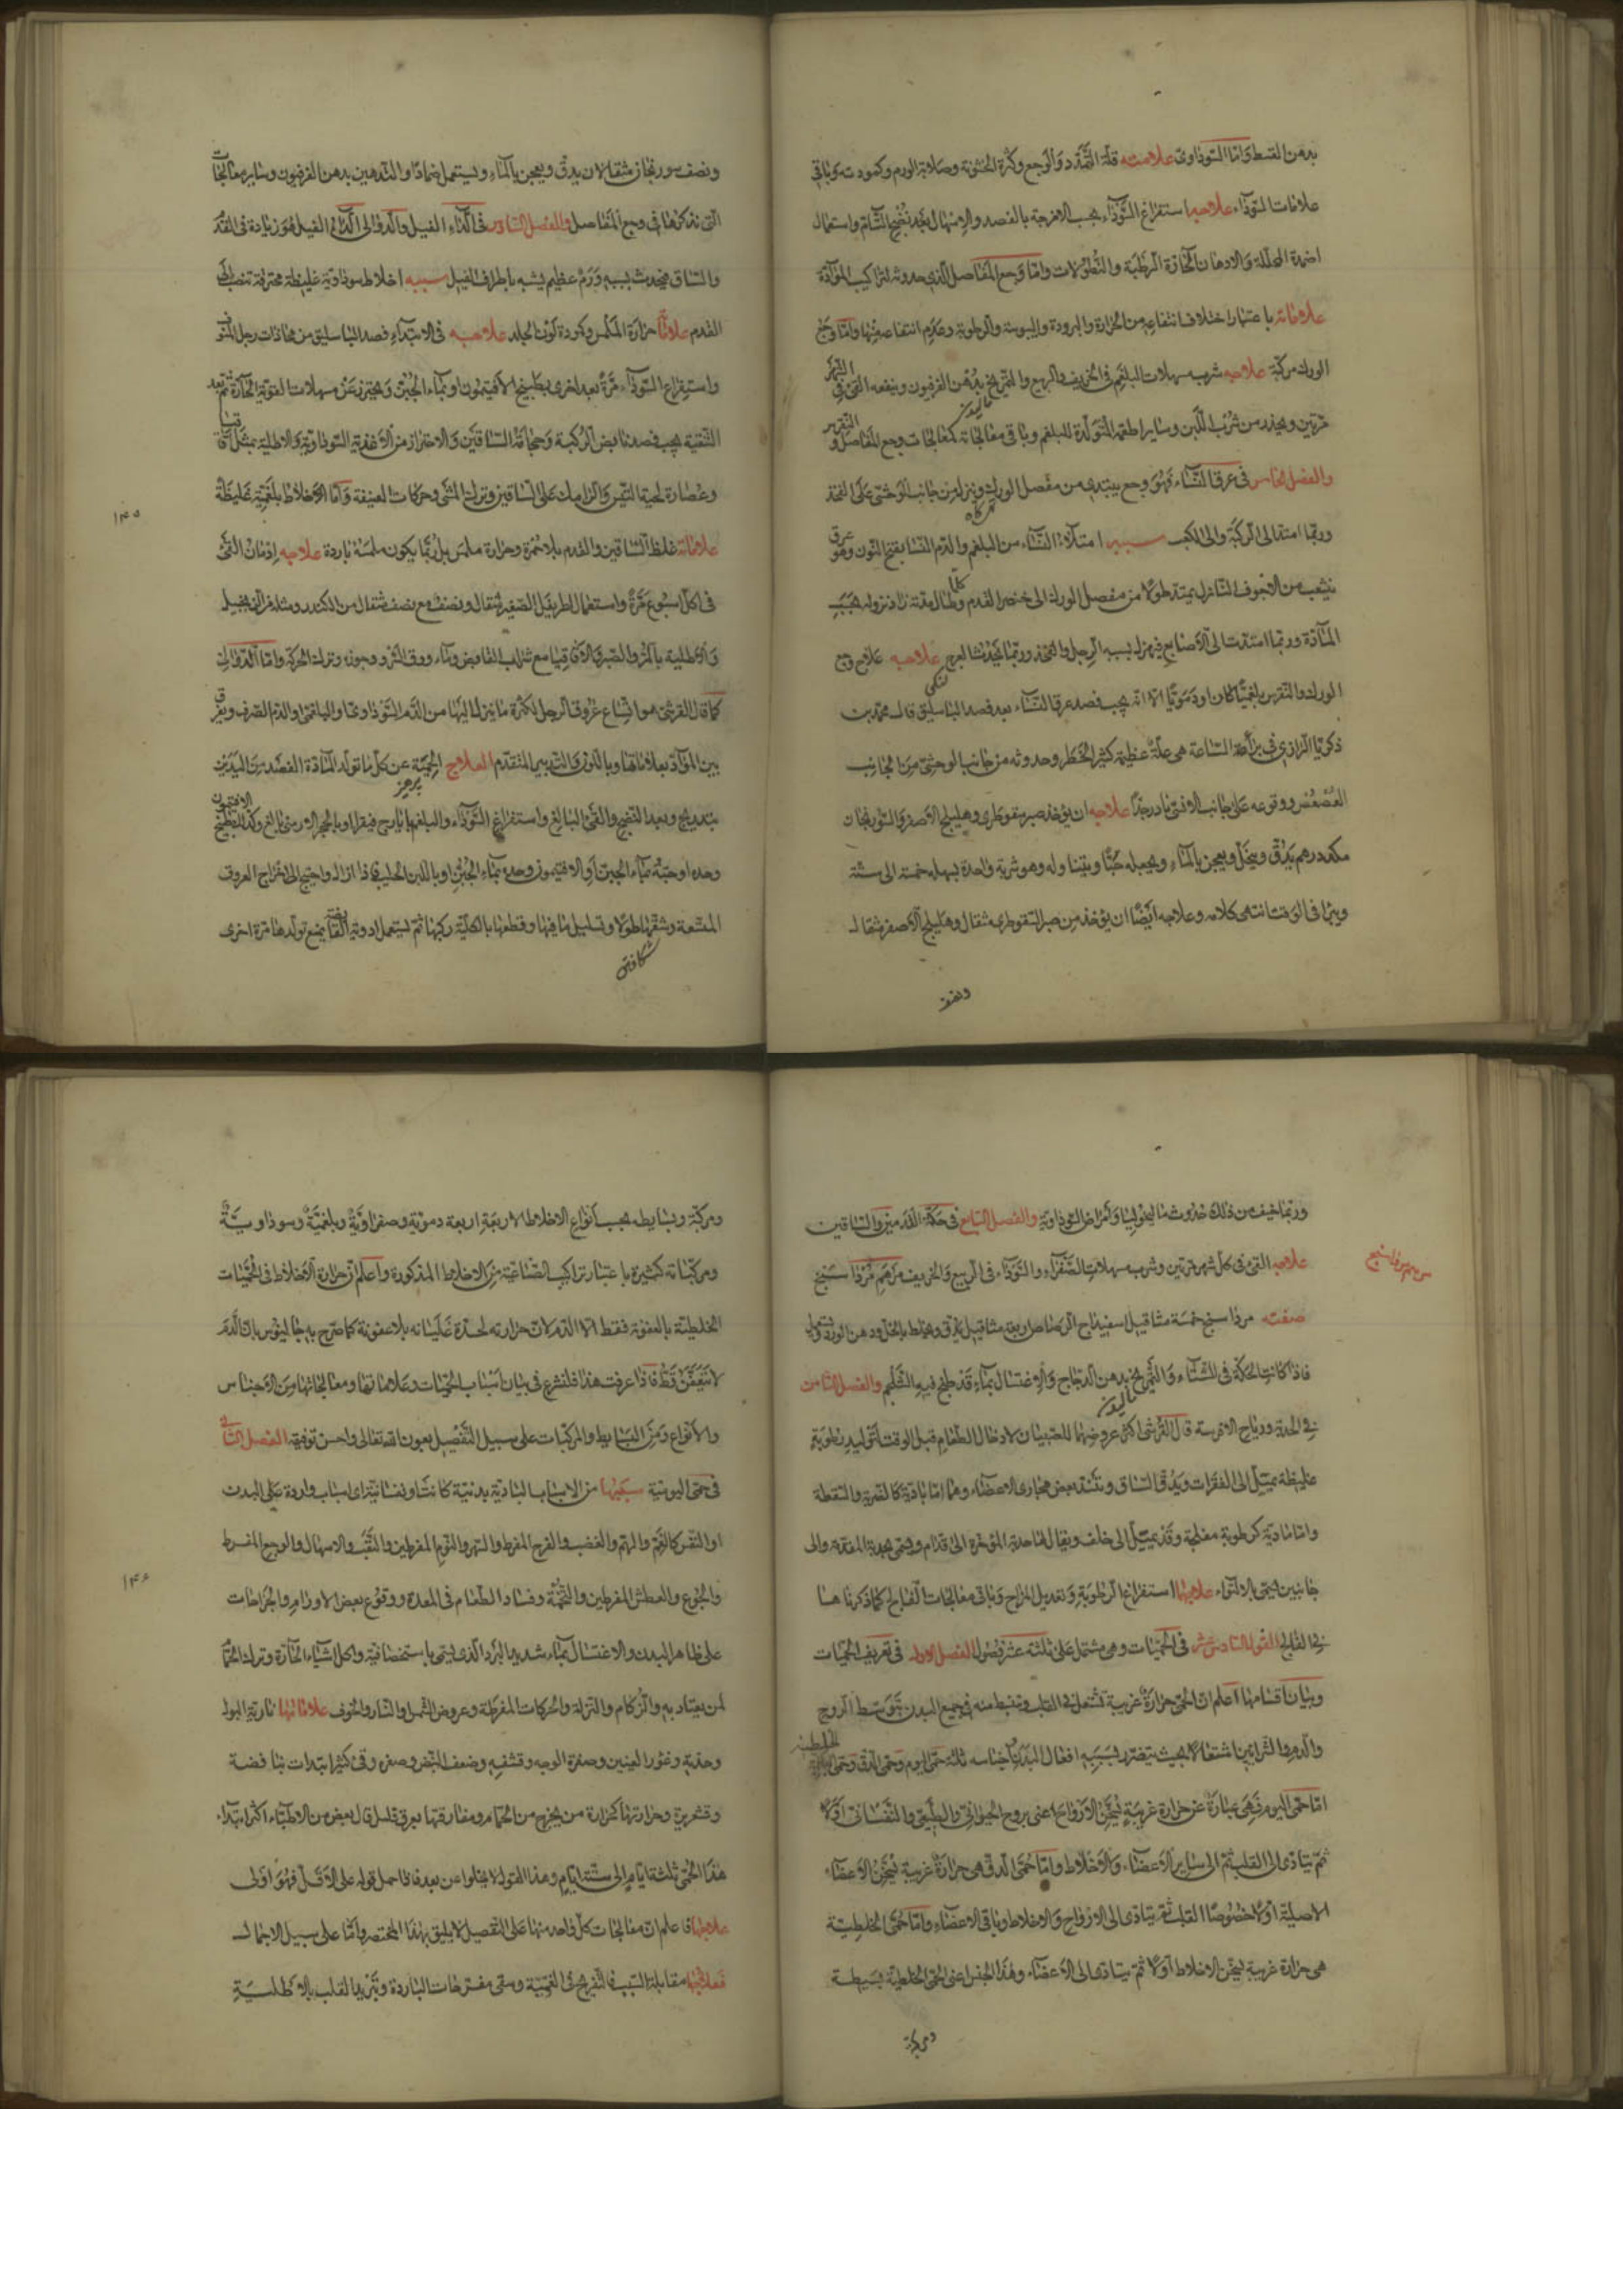 بدهن القسط واما السوداوی علامته قلة التمدد والوجع وکثرة الخشونة وصلابة الورم وکمودته وباقی
علامات السوداء علاجه استفراغ السوداء بحسب الامزجة بالفصد والاسهال بعد نضج التام واستعمال
اضمدة المحللة والادهان الحارة الرطبة والنطولات واما وجع المفاصل الذی حدوثه لتراکیب المواد
علاماته باعتبار اختلاف انتفاعه من الحرارة والبرودة والیبوسة والرطوبة وعدم انتفاعه منها واما وجع
الورک مرکبة علاجه شرب مسهلات البلغم فی الخریف والربیع والتمریخ بدهن الفرفیون وینفعه القئ فی الشهر
مرتین ویحذر من شرب اللبن وسایر اطعمة المتولدة للبلغم وباقی معالجاته کمعالجات وجع المفاصل و النقرس
والفصل الخامس فی عرق النساء فهو وجع یبتدی من مفصل الورک وینزل من جانب الوحشی علی الفخذ
وربما امتد الی الرکبة والی الکعب سببه امتلاء النساء من البلغم والدم النسا بفتح النون وهو عرق
ینشعب من الاجوف النازل یمتد طولا من مفصل الورک الی خنصر القدم وکلما طال مدته زاد نزوله بحسب
المادة وربما امتدت الی الاصابع فیهزل بسببه الرجل والفخذ وربما یحدث العرج علاجه علاج وجع
الورک والنقرس بلغمیا کان او دمویا الا انه یجب فصد عرق النساء بعد فصد الباسلیق قال محمد بن
زکریا الرازی فی برأ الساعة هی علة عظیمة کثیر الخطر وحدوثه من جانب الوحشی من الجانب
العصعص ووقوعه علی جانب الانسی نادر جدا علاجه ان یؤخذ صبر سقوطری وهلیلج الاصفر والسورنجان
مکد درهم یدق وینخل ویعجن بالماء ویجعله حبا ویتناوله وهو شربة واحدة یسهل خمسة الی ستة
ویبرأ فی الوقت انتهی کلامه وعلاجه ایضا ان یؤخذ من صبر السقوطری مثقال وهلیلج الاصفر مثقال
ونصف
ونصف سورنجان مثقالان یدق ویعجن بالماء ویستعمل ضمادا والتدهین بدهن الفرفیون وسایر معالجات
التی نذکرها فی وجع المفاصل والفصل السادس فی الداء الفیل والدوالی الداء الفیل هو زیادة فی القدم
والساق یحدث بسببه ورم عظیم یشبه باطراف الفیل سببه اخلاط سوداویة غلیظة محترقة تنصب الی
القدم علاماته حرارة الملمس وکمودة لون الجلد علاجه فی الابتداء فصد الباسلیق من محاذات رجل المؤف
واستفراغ السوداء مرة بعد اخری بطبیخ الافتیمون او بماء الجبن ویحترز عن مسهلات القویة الحارة ثم بعد
التنقیة یجب فصد مابض الرکبة وحجامة الساقین والاحتراز من الاغذیة السوداویة والاطلیة بمثل اقاقیا
وعصارة لحیة التیس والرامک علی الساقین وترک المشی وحرکات العنیفة واما الاخلاط بلغمیة غلیظة
علاماته غلظ الساقین والقدم بلا حمرة وحرارة ملمس بل ربما یکون ملمسه باردة علاجه ادمان القئ
فی کل اسبوع مرة واستعمال اطریفل الصغیر مثقال ونصف مع نصف مثقال من الکندر ومثله من الزنجبیل
والاطلیة بالمر والصبر والاقاقیا مع شراب القابض وماء ورق السرو وجوزه وترک الحرکة واما الدوالی
کما قال القرشی هو اتساع عروق الرجل لکثرة ما ینزل الیها من الدم السوداوی او البلغمی او الدم الصرف ویفرق
بین المواد بعلاماتها وباللون والتدبیر المتقدم العلاج الحمیة عن کل ما تولد المادة الفصد من الیدین
پرهیز
بتدریج وبعد النضج والقئ البالغ واستفراغ السوداء والبلغم بایارج فیقرا وبالحجر الارمنی بالغ وکذا بطبیخ الافتیمون
وحده او حبه بماء الجبن او الافتیمون وحده بماء الجبن او باللبن الحلیب فاذا زال واحتیج الی اخراج العروق
المتسعة وشقها طولا وتسلیل ما فیها وقطعها بالکلیة وکیها ثم یستعمل ادویة القابضة یمنع تولدها مرة اخری
شکافتن
۱۴۵
وربما خیف من ذلک حدوث مالیخولیا وامراض السوداویة والفصل السابع فی حکة القدمین والساقین
علاجه القئ فی کل شهر مرتین وشرب مسهلات الصفراء والسوداء فی الربیع والخریف مرهم مرداسنج
صفته مرداسنج خمسة مثاقیل سفیداج الرصاص اربعة مثاقیل یدق ویخلط بالخل ودهن الورد ویستعمل
فاذا کانت الحکة فی الشتاء والتمریخ بدهن الدجاج والاغتسال بماء قد طبخ فیه الشلجم والفصل الثامن
فی الحدبة وریاح الافرسة قال القرشی اکثر عروضها للصبیان لادخال الطعام قبل الوقت لتولید رطوبة
غلیظة یمیل الی الفقرات ویدق الساق وتنسد بعض مجاری الاعضاء وهما اما بادیة کالضربة والسقطة
واما مادیة کرطوبة مفلجة وقد یمیل الی خلف ویقال لها حدبة المؤخرة الی قدام ویسمی بحدبة المقدمة والی
جانبین یسمی بالالتواء علاجها استفراغ الرطوبة وتعدیل المزاج وباقی معالجات الفالج کما ذکرناها
فی الفالج القول السادس عشر فی الحمیات وهی مشتمل علی ثلثة عشر فصول الفصل الاول فی تعریف الحمیات
وبیان اقسامها اعلم ان الحمی حرارة غریبة تشتعل فی القلب وتنبسط منه فی جمیع البدن بتوسط الروح
والدم والشرایین اشتعالا بحیث یتضرر بسببه افعال البدن واجناسه ثلثة حمی الیوم وحمی الدق وحمی الخلطیة
اما حمی الیوم فهی عبارة عن حرارة غریبة لیسخن الارواح اعنی بروح الحیوانی والطبیعی والنفسانی اولا
ثم یتادی الی القلب ثم الی سایر الاعضاء والاخلاط واما حمی الدق هی حرارة غریبة لیسخن الاعضاء
الاصلیة اولا خصوصا القلب ثم یتادی الی الارواح والاخلاط وباقی الاعضاء واما حمی الخلطیة
هی حرارة غریبة لیسخن الاخلاط اولا ثم یتادی الی الاعضاء وهذا الجنس اعنی الحمی الخلطیة بسیطة
ومرکبة
ومرکبة وبسایطه بحسب انواع الاخلاط الاربعة اربعة دمویة وصفراویة وبلغمیة وسوداویة
ومرکباته کثیرة باعتبار تراکیب الصناعیة من الاخلاط المذکورة واعلم ان حرارة الاخلاط فی الحمیات
الخلطیة بالعفونة فقط الا الدم لان حرارته لحدة غلیانه بلا عفونة کما صرح به جالینوس بان الدم
لا یتعفن قط فاذا عرفت هذا فلنشرع فی بیان اسباب الحمیات وعلاماتها ومعالجاتها من الاجناس
والانواع ومن البسایط والمرکبات علی سبیل التفصیل بعون الله تعالی واحسن توفیقه الفصل الثانی
فی حمی الیومیة سببها من الاسباب البادیة بدنیة کانت او نفسانیة ای اسباب واردة علی البدن
او النفس کالغم والهم والغضب والفرح المفرط والسهر والنوم المفرطین والتعب والاسهال والوجع المفرط
والجوع والعطش المفرطین والتخمة وفساد الطعام فی المعدة ووقوع بعض الاورام والجراحات
علی ظاهر البدن والاغتسال بماء شدید البرد الذی یسمی باستحصافیة واکل اشیاء الحارة وترک الحمام
لمن یعتاد به والزکام والنزلة والحرکات المفرطة وعروض الشمس والنار والخوف علاماتها ناریة البول
وحدته وغور العینین وصفرة الوجه وقشفه وضعف النبض وصغره وفی کثیر ابتدات بنافضة
وقشعریرة وحرارتها کحرارة من یخرج من الحمام ومفارقتها بعرق قلیل قال بعض من الاطباء اکثر ابتداء
هذا الحمی ثلثة ایام الی ستة ایام وهذا القول لا یخلوا عن بعد فاحمل قوله علی الاقل فهو اولی
علاجها فاعلم ان معالجات کل واحد منها علی التفصیل لا یلیق بهذا المختصر واما علی سبیل الاجمال
فعلاجها مقابلة السبب فالتفریح فی الغمیة وسقی مفرحات الباردة وتبرید القلب بالاطلیة
۱۴۶